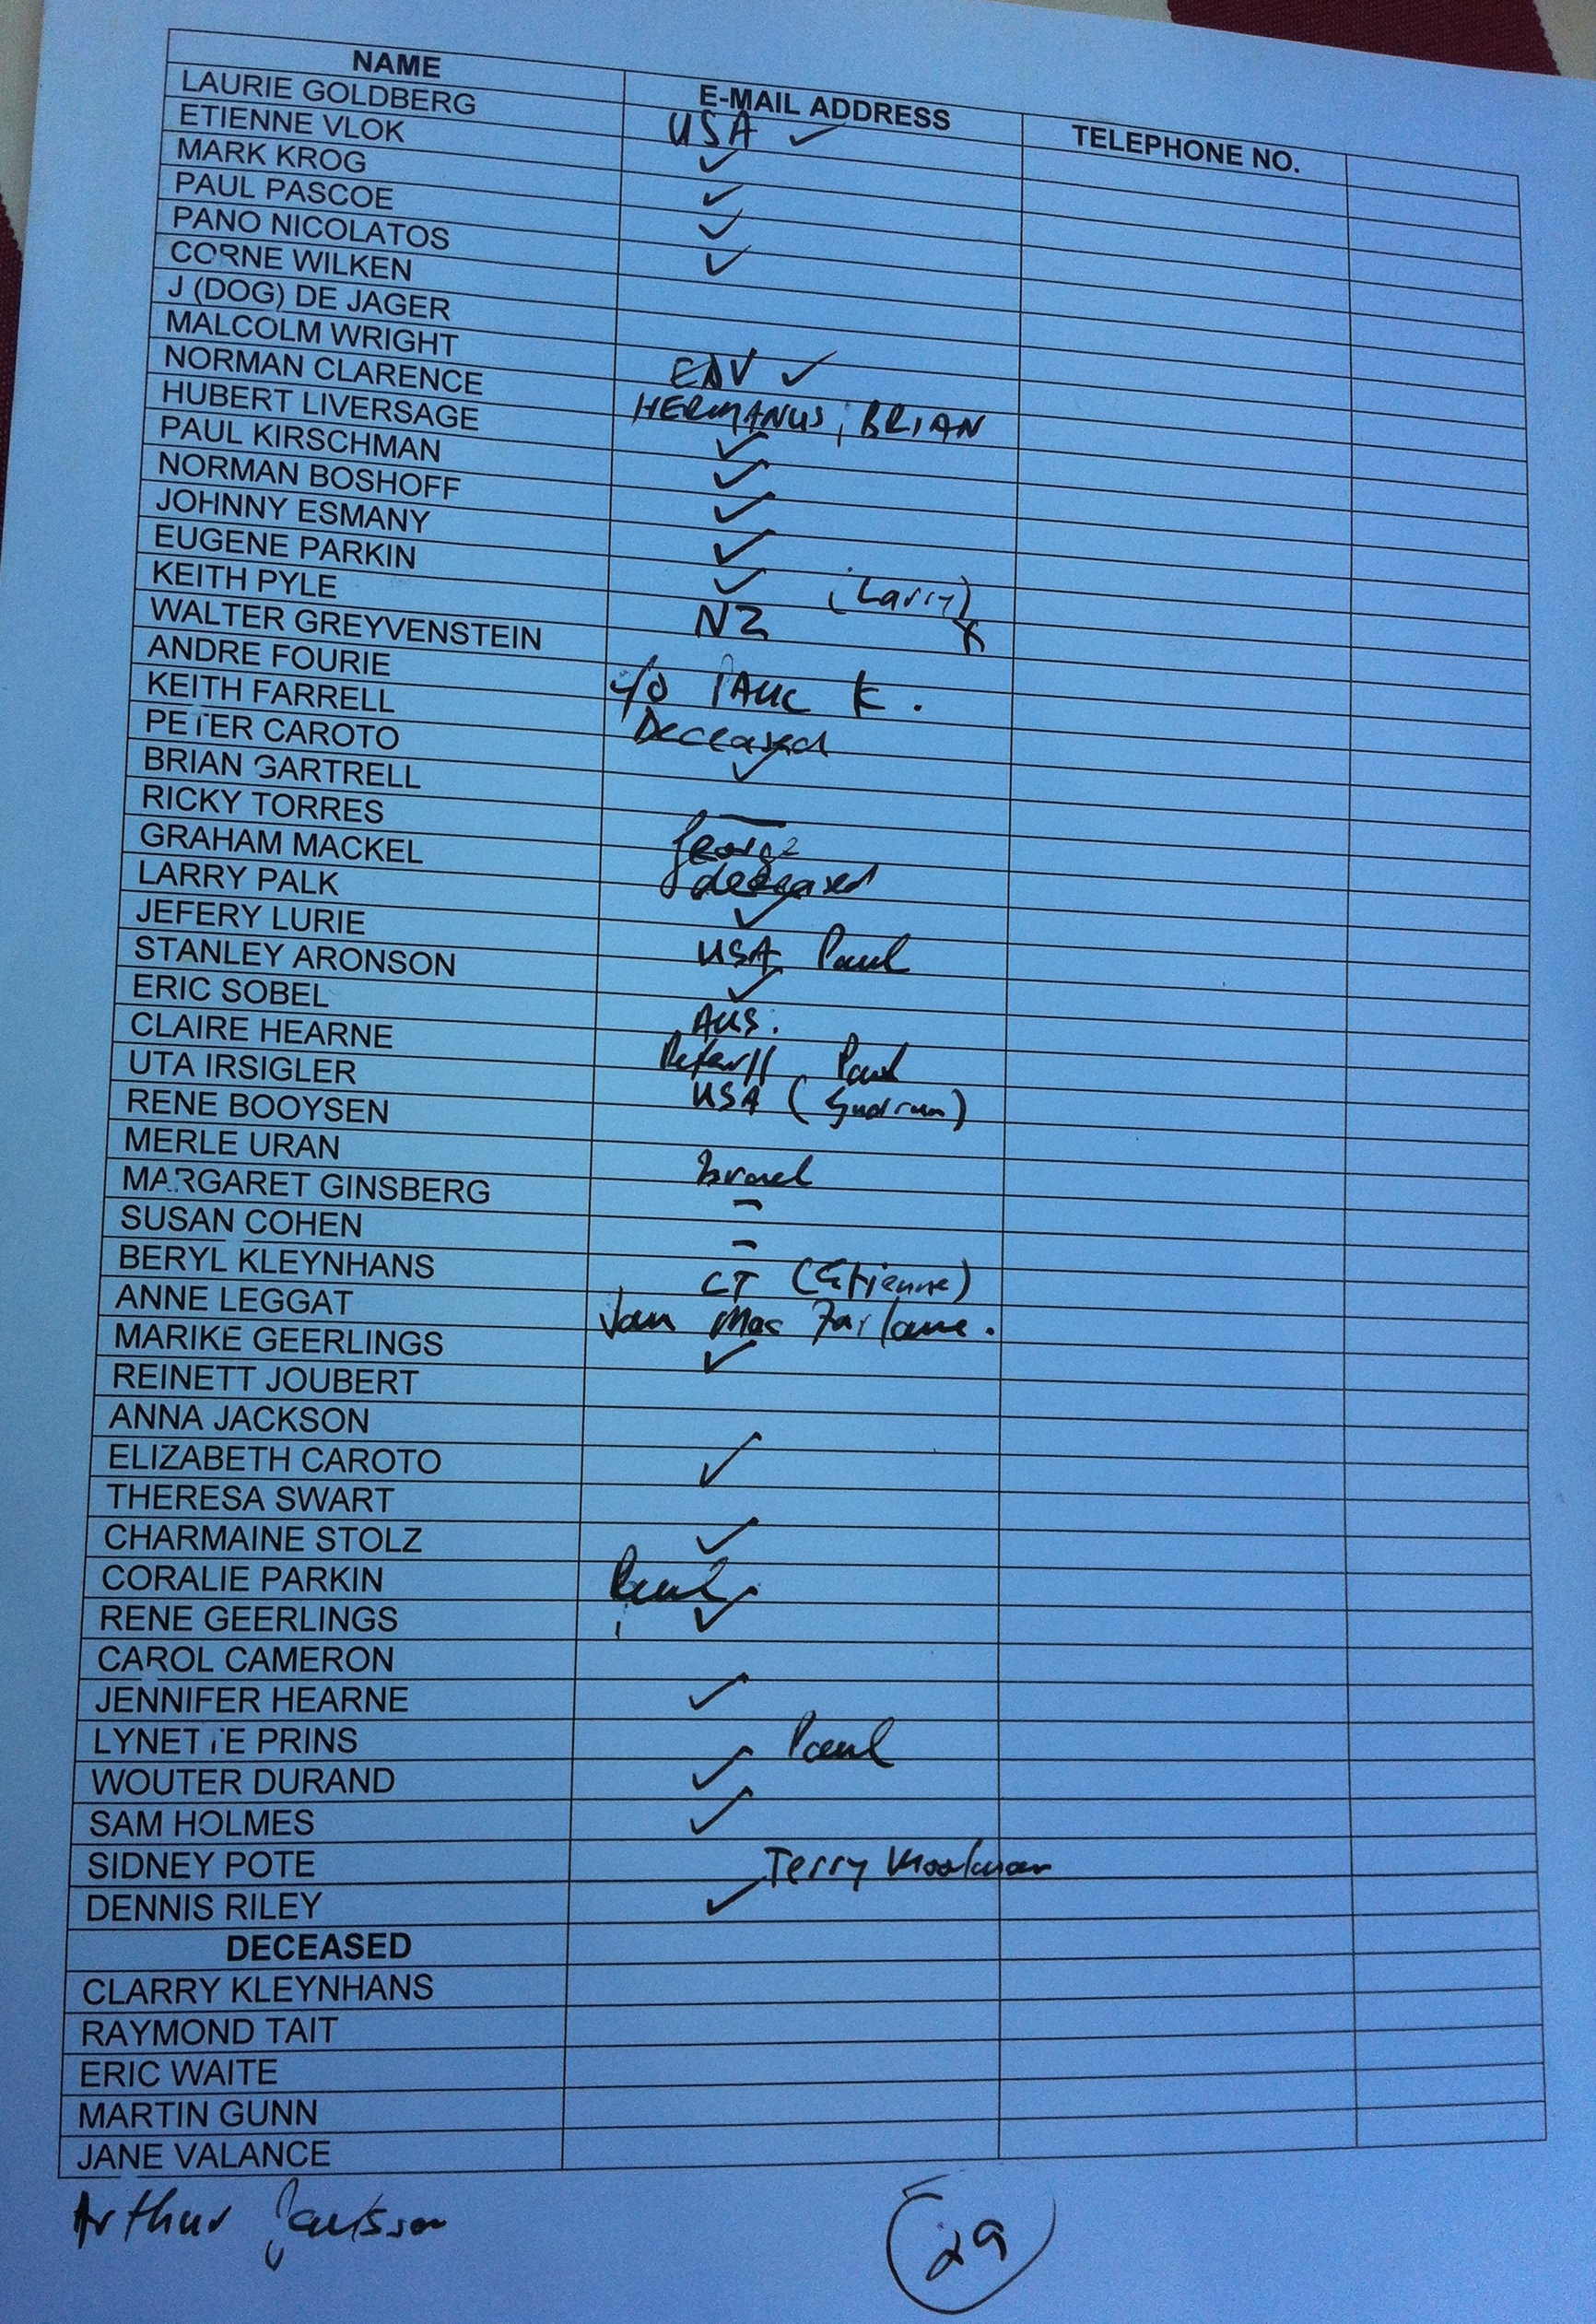 NAME E-MAIL ADDRESS TELEPHONE NO.
LAURIE GOLDBERG USA ✓
ETIENNE VLOK ✓
MARK KROG ✓
PAUL PASCOE ✓
PANO NICOLATOS ✓
CORNE WILKEN
J (DOG) DE JAGER
MALCOLM WRIGHT ✓
NORMAN CLARENCE HERMANUS; BRIAN
HUBERT LIVERSAGE ✓
PAUL KIRSCHMAN ✓
NORMAN BOSHOFF ✓
JOHNNY ESMANY ✓
EUGENE PARKIN ✓ (Larry)
KEITH PYLE NZ x
WALTER GREYVENSTEIN
ANDRE FOURIE c/o PAUL K.
KEITH FARRELL Deceased
PETER CAROTO ✓
BRIAN GARTRELL
RICKY TORRES George
GRAHAM MACKEL deceased
LARRY PALK ✓
JEFERY LURIE USA Paul
STANLEY ARONSON ✓
ERIC SOBEL AUS.
CLAIRE HEARNE Paul
UTA IRSIGLER USA (Gudrun)
RENE BOOYSEN
MERLE URAN Israel
MARGARET GINSBERG -
SUSAN COHEN -
BERYL KLEYNHANS CT (Etienne)
ANNE LEGGAT Jan Mac Farlane.
MARIKE GEERLINGS ✓
REINETT JOUBERT
ANNA JACKSON
ELIZABETH CAROTO ✓
THERESA SWART
CHARMAINE STOLZ ✓
CORALIE PARKIN
RENE GEERLINGS ✓
CAROL CAMERON
JENNIFER HEARNE ✓
LYNETTE PRINS Paul
WOUTER DURAND ✓
SAM HOLMES ✓
SIDNEY POTE Terry
DENNIS RILEY ✓
DECEASED
CLARRY KLEYNHANS
RAYMOND TAIT
ERIC WAITE
MARTIN GUNN
JANE VALANCE
Arthur Jackson
29